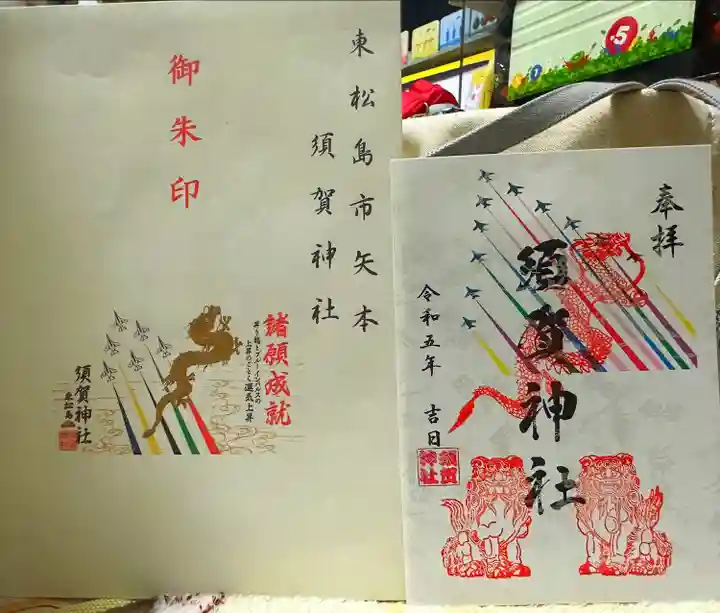 東松島市矢本
須賀神社
御朱印
諸願成就
昇り龍とブルーインパルスの
上昇のごとく運気上昇
須賀神社
東松島
奉拝
須賀神社
令和五年 吉日
須賀
神社
5